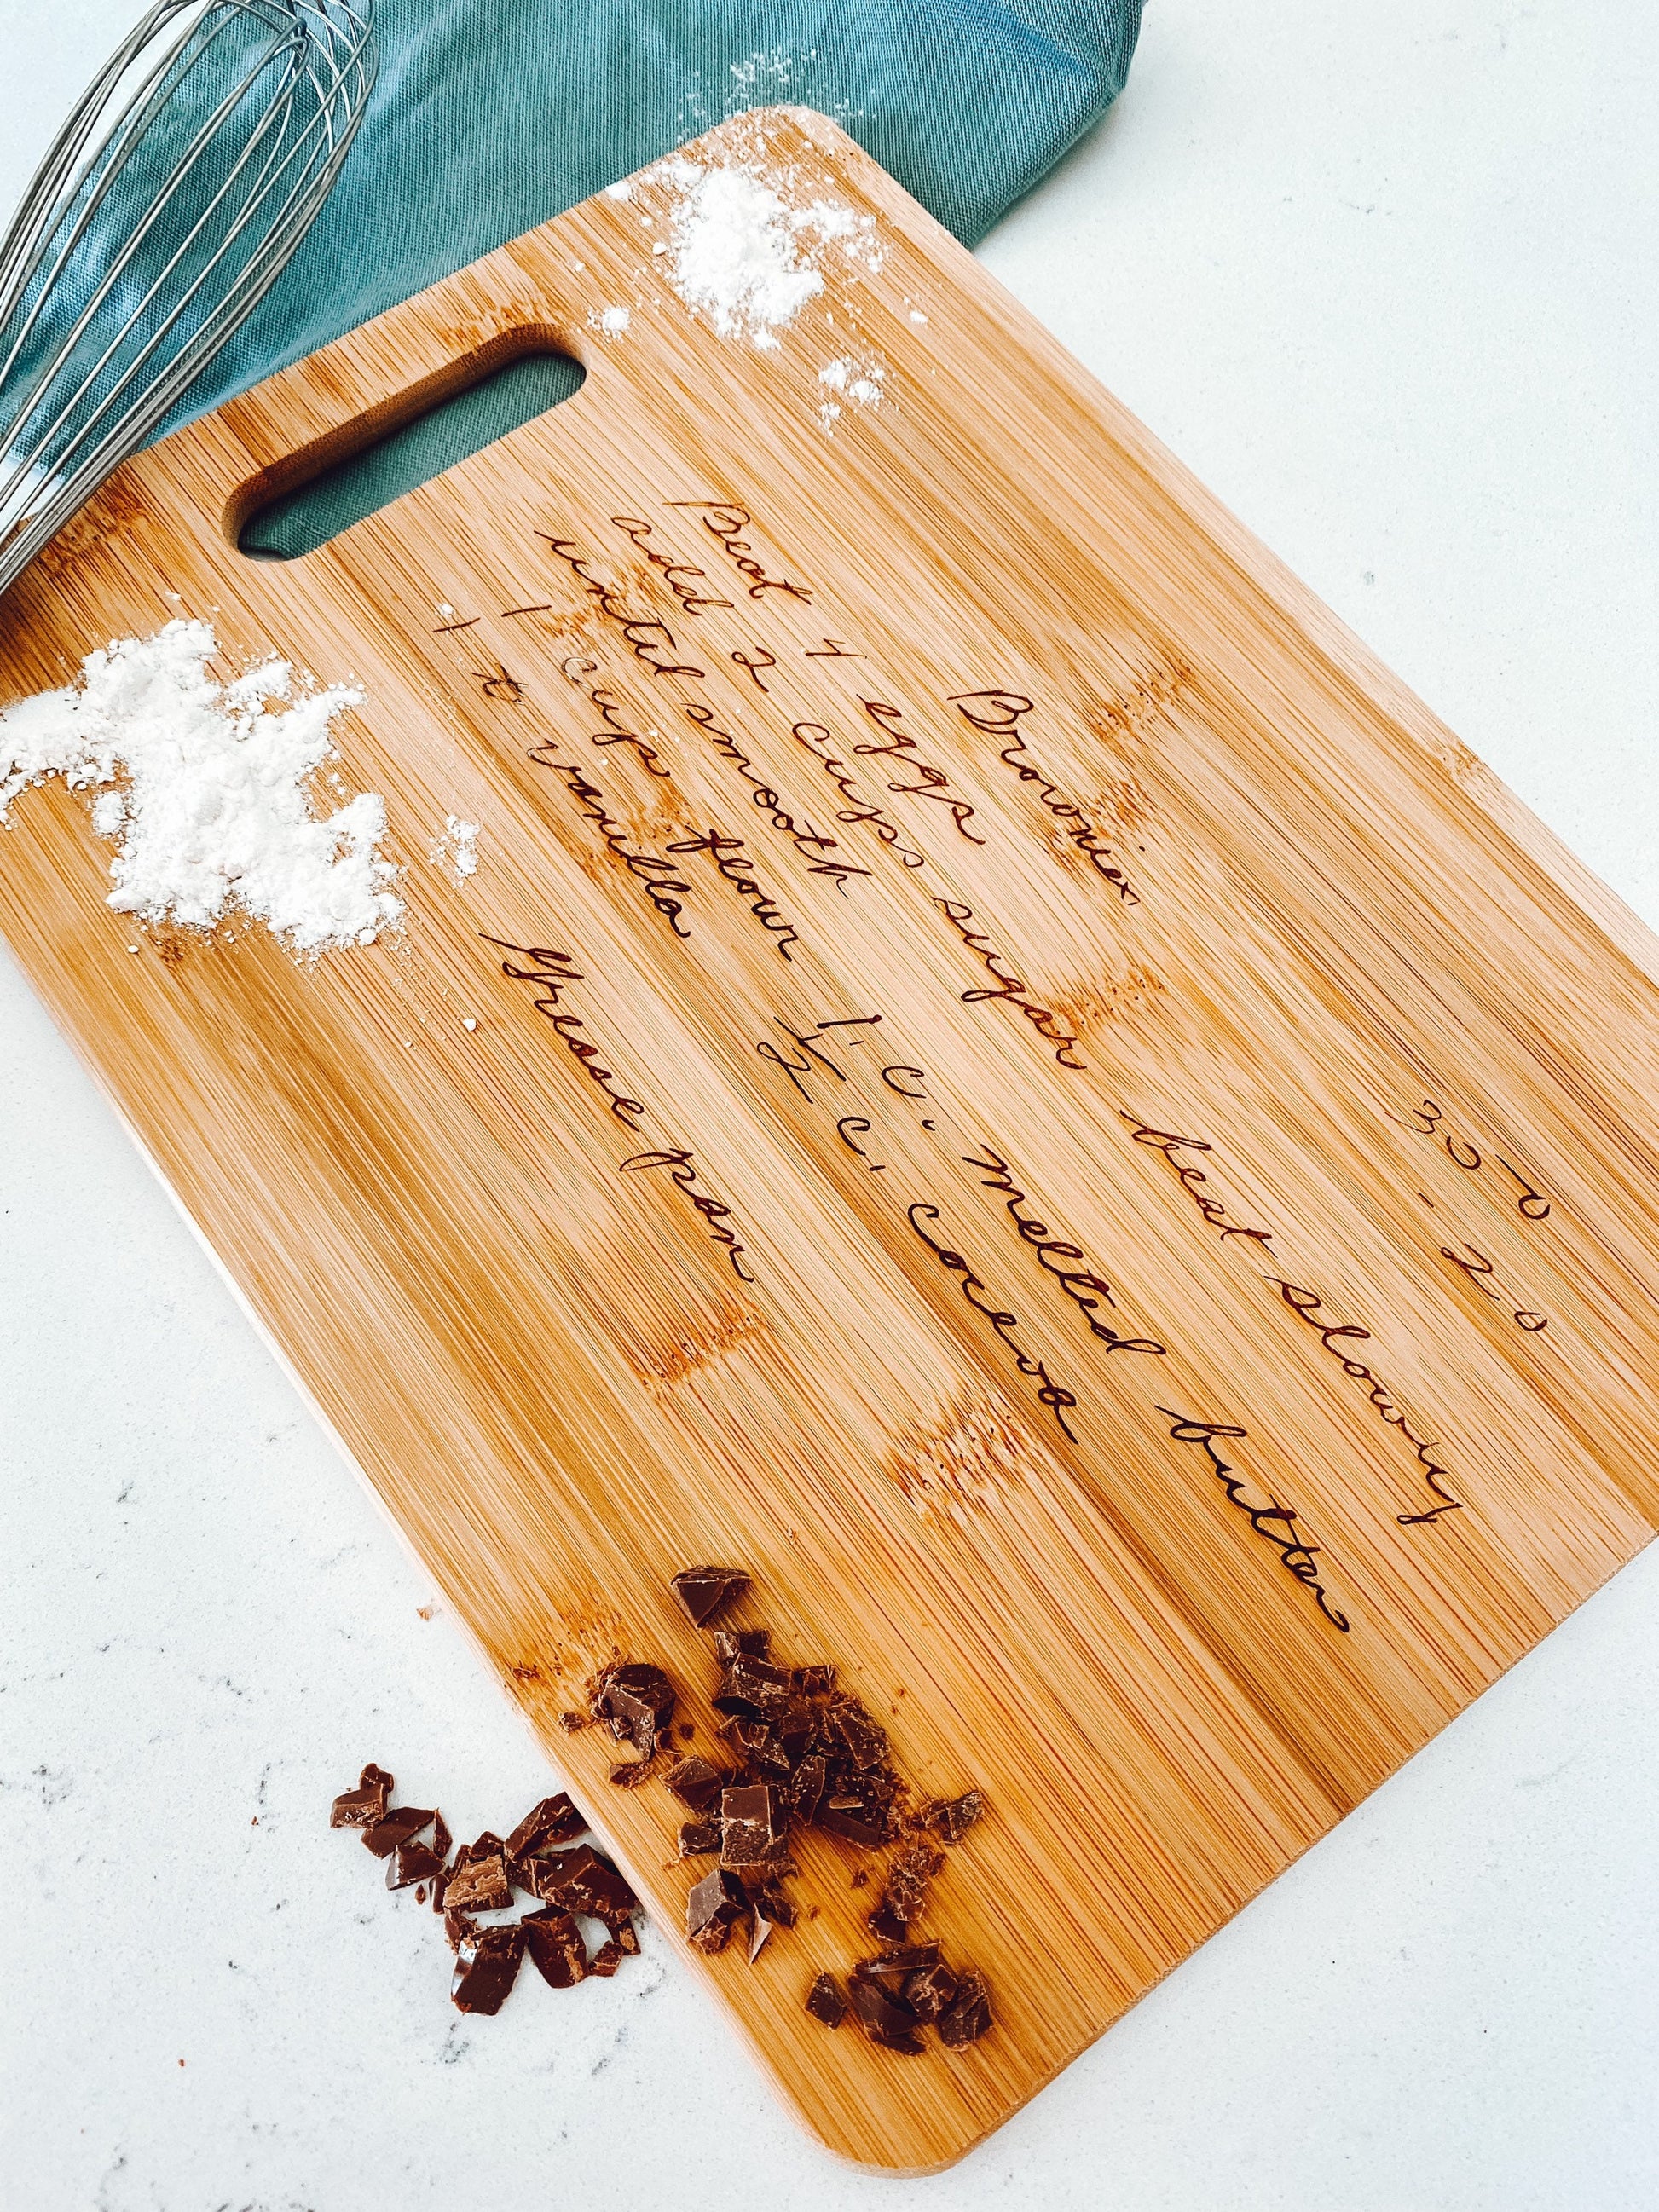 350 - 20
Brownies
Beat 4 eggs
add 2 cups sugar beat slowly
until smooth
1 cups flour 1 c. melted butter
1 t vanilla ½ c. cocoa
Grease pan